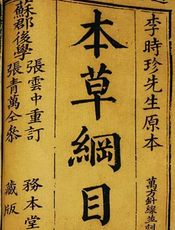 李時珍先生原本
本草綱目
張雲中重訂
蘇郡後學
張青萬仝參
務本堂
藏版